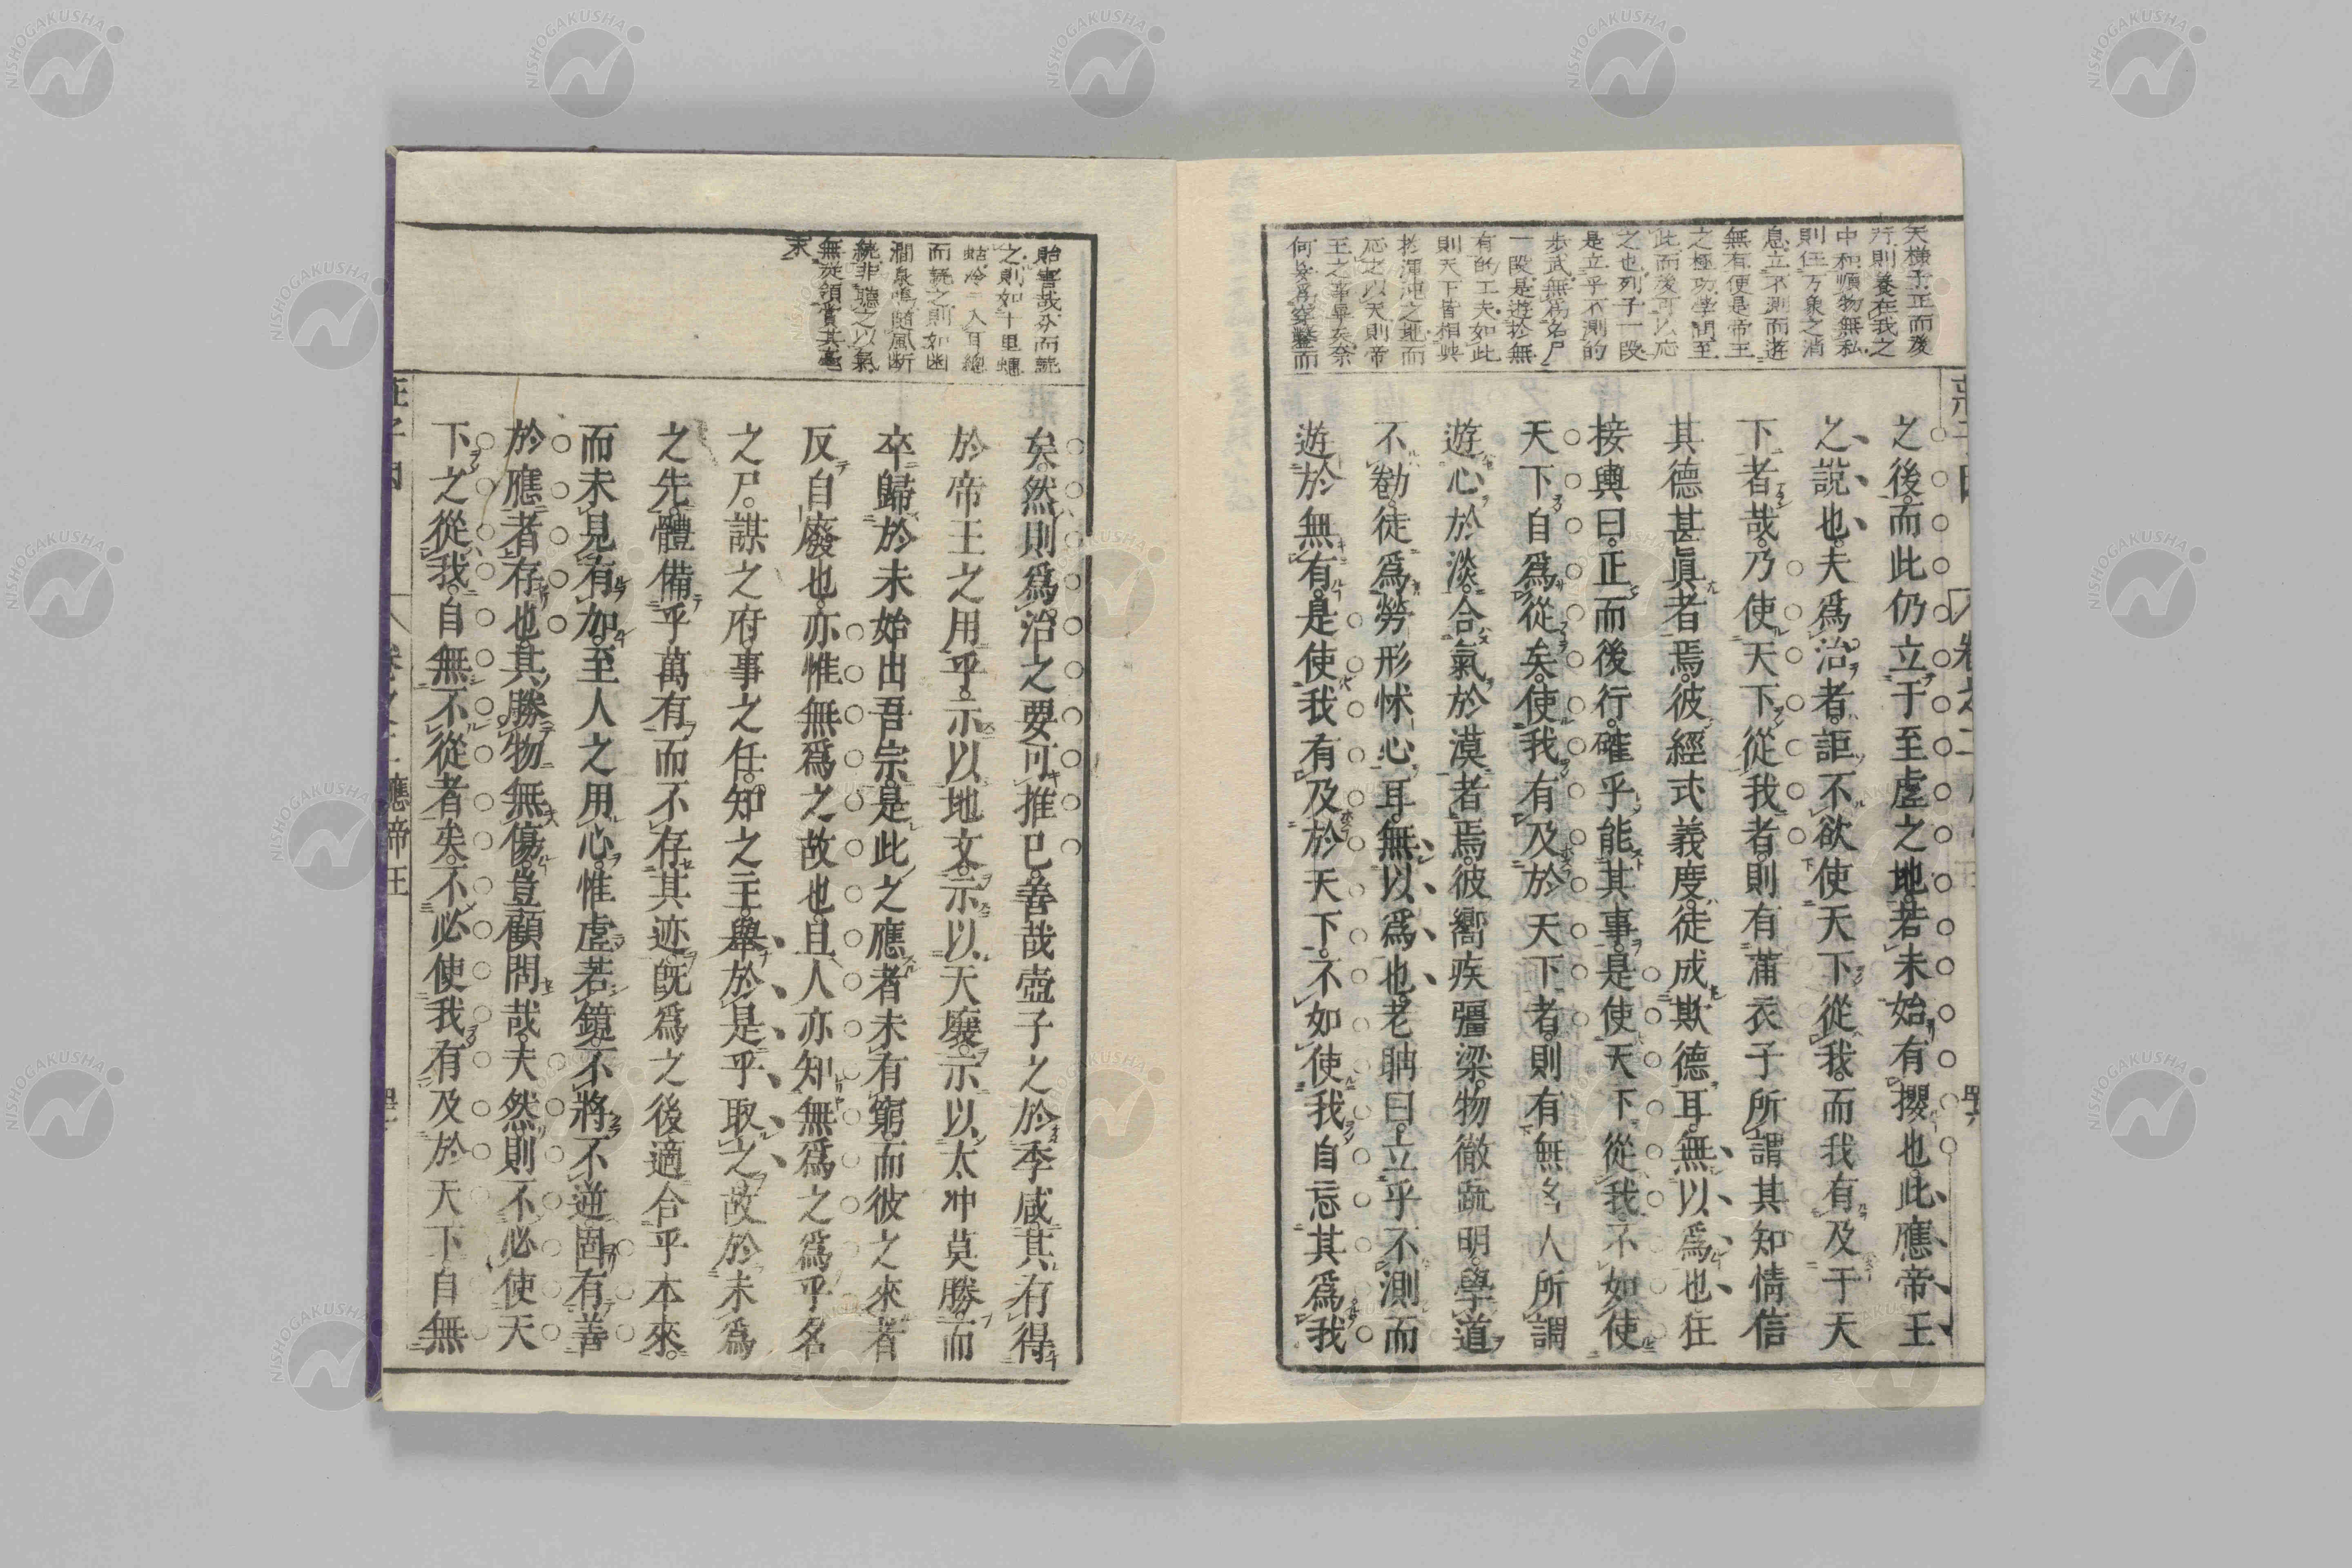 天様子正而後
行則養在我之
中和順物無私
則任万象之消
息立不測而遊
無有便是帝王
之極功學問至
此而後可以応
之也列子一段
是立乎不測的
歩武無為名尸
一段是遊於無
有的工夫如此
則天下皆相與
於渾沌之地而
応之以天則帝
王之事畢矣奈
何妄為穿鑿而
之後而此仍立于至虛之地若未始有攖也此應帝王
之說也夫爲治者詎不欲使天下從我而我有及于天
下者哉乃使天下從我者則有蒲衣子所謂其知情信
其德甚眞者焉彼經式義度徒成欺德耳無以爲也狂
接輿曰正而後行確乎能其事是使天下從我不如使
天下自爲從矣使我有及於天下者則有無名人所謂
遊心於淡合氣於漠者焉彼嚮疾彊梁物徹疏明學道
不勌徒爲勞形怵心耳無以爲也老聃曰立乎不測而
遊於無有是使我有及於天下不如使我自忘其爲我
貽害哉分而読
之則如十里蟪
蛄冷冷入耳總
而読之則如幽
澗泉鳴随風断
続非聴之以氣
無従領賞其毫
末
矣然則爲治之要可推已善哉壺子之於季咸其有得
於帝王之用乎示以地文示以天壤示以太冲莫勝而
卒歸於未始出吾宗是此之應者未有窮而彼之來者
反自廢也亦惟無爲之故也且人亦知無爲之爲乎名
之尸謀之府事之任知之主舉於是乎取之故於未爲
之先體備乎萬有而不存其迹旣爲之後適合乎本來
而未見有加至人之用心惟虛若鏡不將不逆固有善
於應者存也其勝物無傷豈顧問哉夫然則不必使天
下之從我自無不從者矣不必使我有及於天下自無
莊子因
卷之二
應帝王